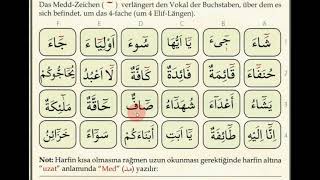 Das Medd-Zeichen ( ٓ ) verlängert den Vokal der Buchstaben, über dem es
sich befindet, um das 4-fache (um 4 Elif-Längen).
جَٓاءَ اَوْلِيَٓاءَ سُٓوءَ يَٓا اَيُّهَا جِٓىءَ شَٓاءَ
يُحَٓاجُّوكُمْ لَٓا اَعْبُدُ كَٓافَّةً فَٓائِدَةٌ قَٓائِمَةٌ حُنَفَٓاءَ
مَلٰٓئِكَةُ حَٓاقَّةُ صَٓافٌّ شُهَدَٓاءَ اَعْدَٓاءَ يَشَٓاءُ
خَزَٓائِنُ سَوَٓاءٌ اَبْنَٓاءَكُمْ يَٓا اَبَتِ طَٓائِفَةٌ اِنَّٓا اِلَيْهِ
Not: Harfin kısa olmasına rağmen uzun okunması gerektiğinde harfin altına
"uzat" anlamında "Med" (مد) yazılır: